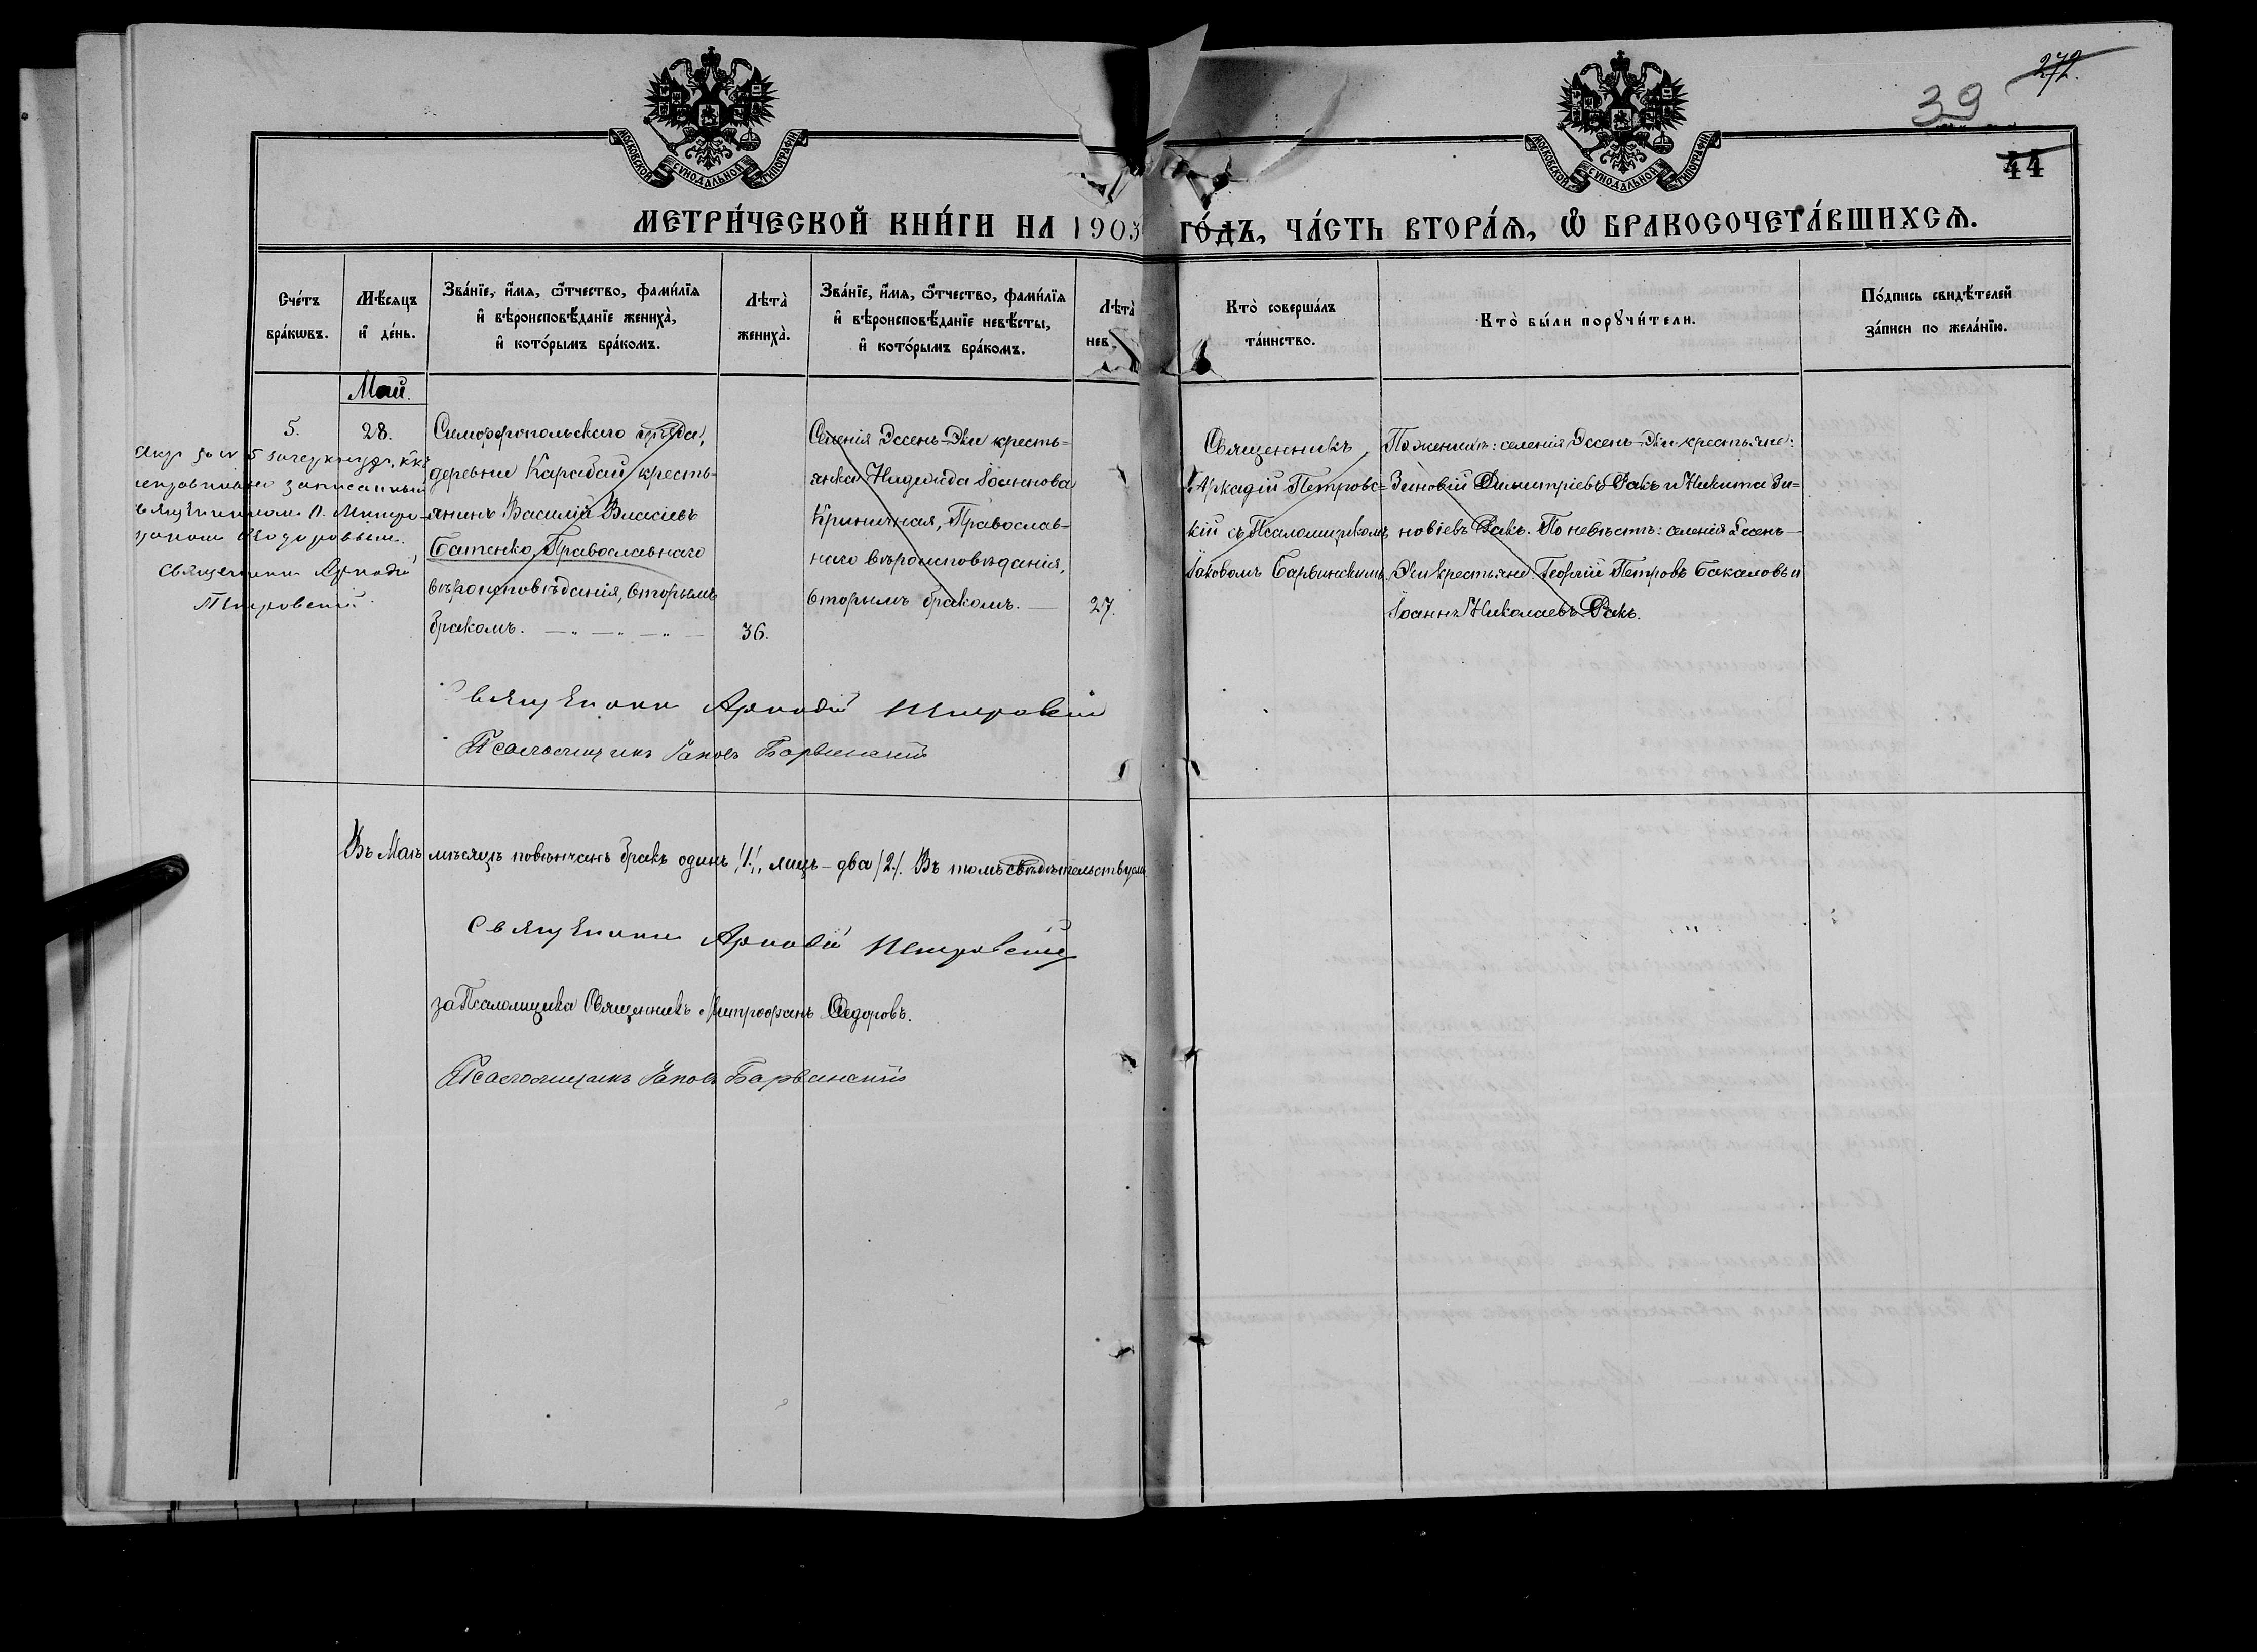 272.
39
44
МОСКОВСКОЙ СѴНОДАЛЬНОЙ ТИПОГРАФІИ
МОСКОВСКОЙ СѴНОДАЛЬНОЙ ТИПОГРАФІИ
МЕТРИ́ЧЕСКОЙ КНИ́ГИ НА 1903 ГО́ДЪ, ЧА́СТЬ ВТОРА́Ѧ, Ѡ҆ БРАКОСОЧЕТА́ВШИХСѦ.
Сче́тъ
бра́кѡвъ.
Мѣ́сяцъ
и҆ де́нь.
Зва́нїе, и҆́мѧ, ѻ҆́тчество, фамі́лїѧ
и҆ вѣроисповѣ́данїе жениха̀,
и҆ кото́рымъ бра́комъ.
Лѣта̀
жениха̀.
Зва́нїе, и҆́мѧ, ѻ҆́тчество, фамі́лїѧ
и҆ вѣроисповѣ́данїе невѣ́сты,
и҆ кото́рымъ бра́комъ.
Лѣта̀
нев
Кто̀ соверша́лъ
та́инство.
Кто̀ бы́ли порꙋчи́тели.
По́дпись свидѣ́телей
за́писи по жела́нїю.
Май.
5.
28.
Симферопольскаго уѣзда,
деревни Карабай, кресть-
янинъ Василій Власіевъ
Батенко, Православнаго
вѣроисповѣданія, вторымъ
бракомъ.
36.
Селенія Эссенъ-Эки кресть-
янка Надежда Іоаннова
Криничная, Православ-
наго вѣроисповѣданія,
вторымъ бракомъ.
27.
Священникъ
Аркадій Петровс-
кій съ Псаломщикомъ
Іаковомъ Барвинскимъ.
По женихѣ: селенія Эссенъ-Эки крестьяне:
Зиновій Димитріевъ Факъ и Никита Зи-
новіевъ Факъ. По невѣстѣ: селенія Эссенъ-
Эки крестьяне: Георгій Петровъ Бакаловъ и
Іоаннъ Николаевъ Факъ.
5 зачеркнутъ, какъ
неправильно записанный
священникомъ Митро-
фаномъ Ѳедоровымъ.
Священникъ Аркадій
Петровскій.
Священникъ Аркадій Петровскій
Псаломщикъ Іаковъ Барвинскій
Въ Маѣ мѣсяцѣ повѣнчанъ бракъ одинъ /1./, лицъ - два /2./. Въ томъ свидѣтельствуемъ
Священникъ Аркадій Петровскій
за Псаломщика Священникъ Митрофанъ Ѳедоровъ.
Псаломщикъ Іаковъ Барвинскій